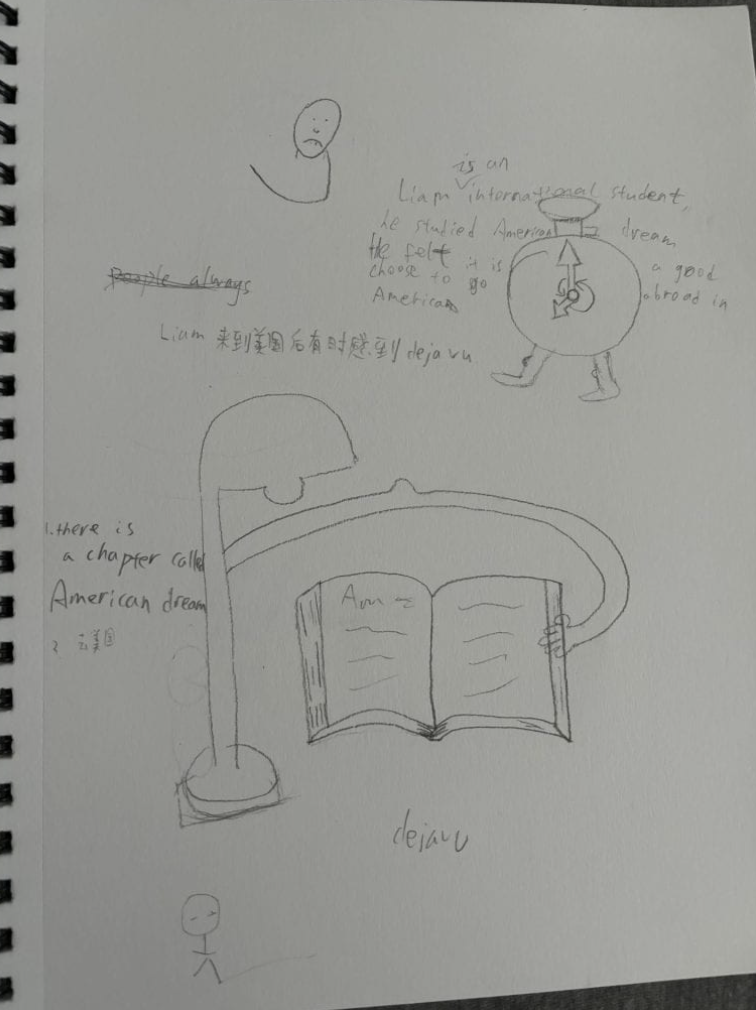 is an
Liam international student,
he studied American dream
He felt it is a good
choose to go abroad in
American
People always
Liam 来到美国后有时感到 dejavu
1. there is
a chapter called
American dream
2 去美国
Am
dejavu